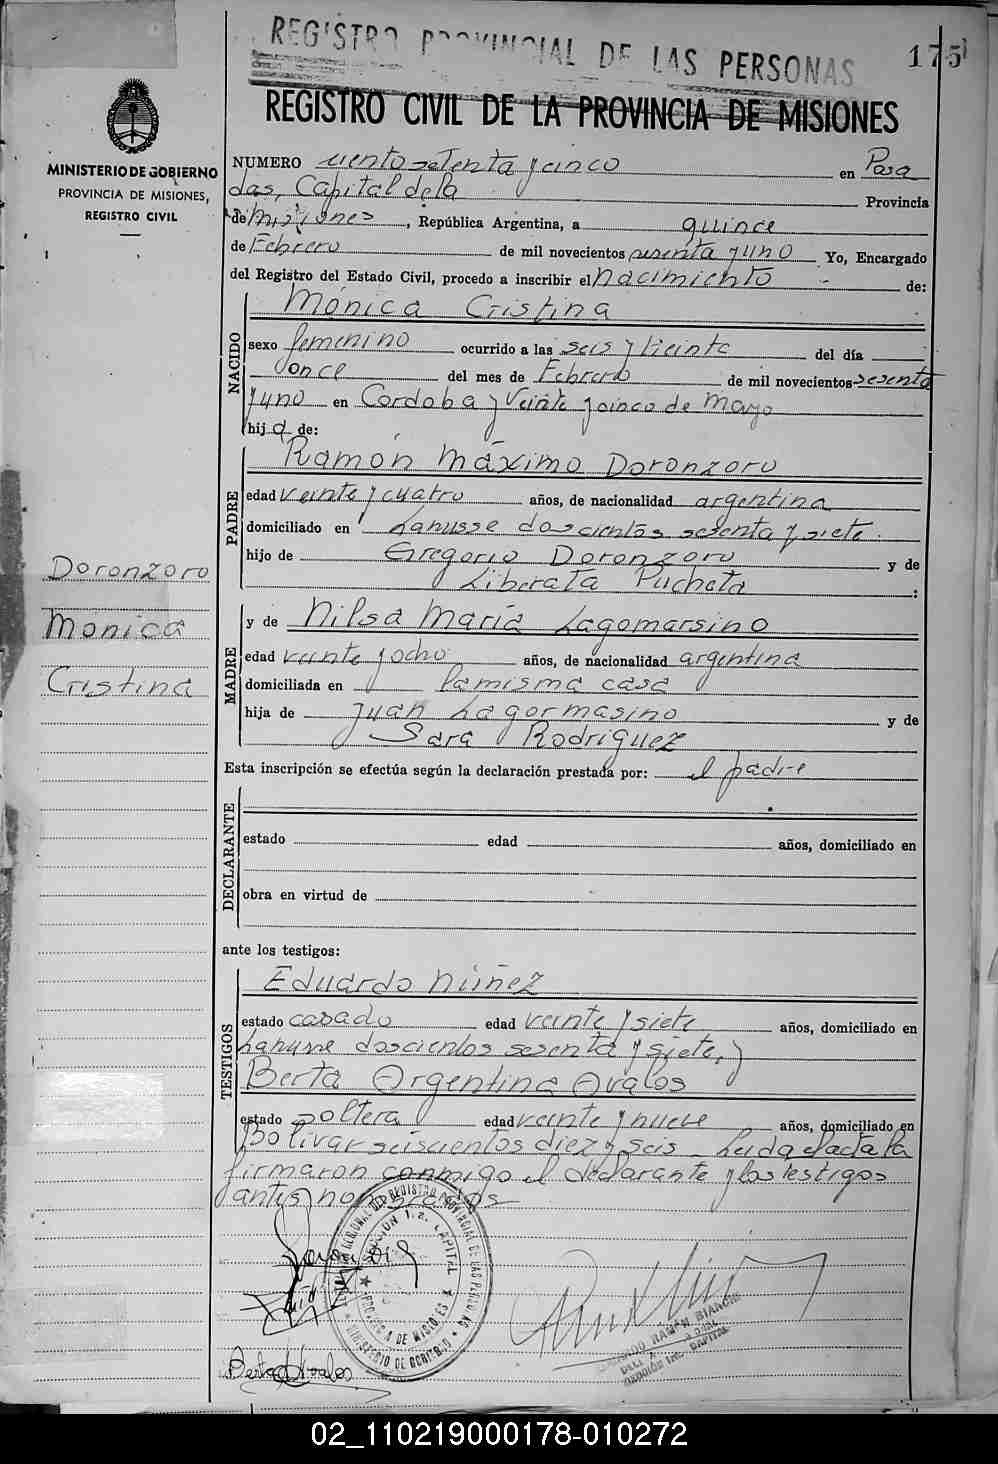 REGISTRO PROVINCIAL DE LAS PERSONAS
175
REGISTRO CIVIL DE LA PROVINCIA DE MISIONES
MINISTERIO DE GOBIERNO
PROVINCIA DE MISIONES,
REGISTRO CIVIL
NUMERO ciento setenta y cinco en Posa
das, Capital de la Provincia
de Misiones, República Argentina, a quince
de Febrero de mil novecientos sesenta y uno Yo, Encargado
del Registro del Estado Civil, procedo a inscribir el nacimiento de:
NACIDO
Mónica Cristina
sexo femenino ocurrido a las seis y veinte del día
once del mes de Febrero de mil novecientos sesenta
y uno en Cordoba y Veinte y cinco de Mayo
hija de:
PADRE
Ramón Máximo Doronzoro
edad veinte y cuatro años, de nacionalidad argentina
domiciliado en Lanusse doscientos sesenta y siete.
hijo de Gregorio Doronzoro y de
Liberata Pucheta :
Doronzoro
Monica
Cristina
MADRE
y de Nilsa María Lagomarsino
edad veinte y ocho años, de nacionalidad argentina
domiciliada en la misma casa
hija de Juan Lagormasino y de
Sara Rodriguez
Esta inscripción se efectúa según la declaración prestada por: el padre
DECLARANTE
estado edad años, domiciliado en
obra en virtud de
ante los testigos:
TESTIGOS
Eduardo Núñez
estado casado edad veinte y siete años, domiciliado en
Lanusse doscientos sesenta y siete, y
Berta Argentina Ovalos
estado soltera edad veinte y nueve años, domiciliado en
Bolivar seiscientos diez y seis. Leida el acta la
firmaron conmigo el declarante y los testigos
antes nombrados
REGISTRO PROVINCIAL DE LAS PERSONAS
SECCION 1a. CAPITAL
PROVINCIA DE MISIONES
MINISTERIO DE GOBIERNO
RAMÓN BIANCHI
CAPITAL
Berta Ovalos
02_110219000178-010272